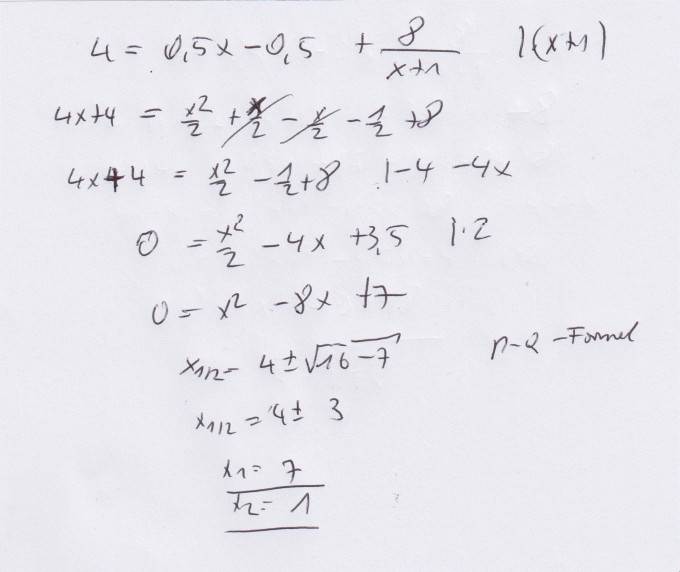 4 = 0,5x - 0,5 + 8/(x+1) |(x+1)
4x+4 = x²/2 + x/2 - x/2 - 1/2 + 8
4x+4 = x²/2 - 1/2 + 8 |-4 -4x
0 = x²/2 - 4x + 3,5 |·2
0 = x² - 8x + 7
x1/2 = 4 ± √16-7 p-q-Formel
x1/2 = 4 ± 3
x1 = 7
x2 = 1